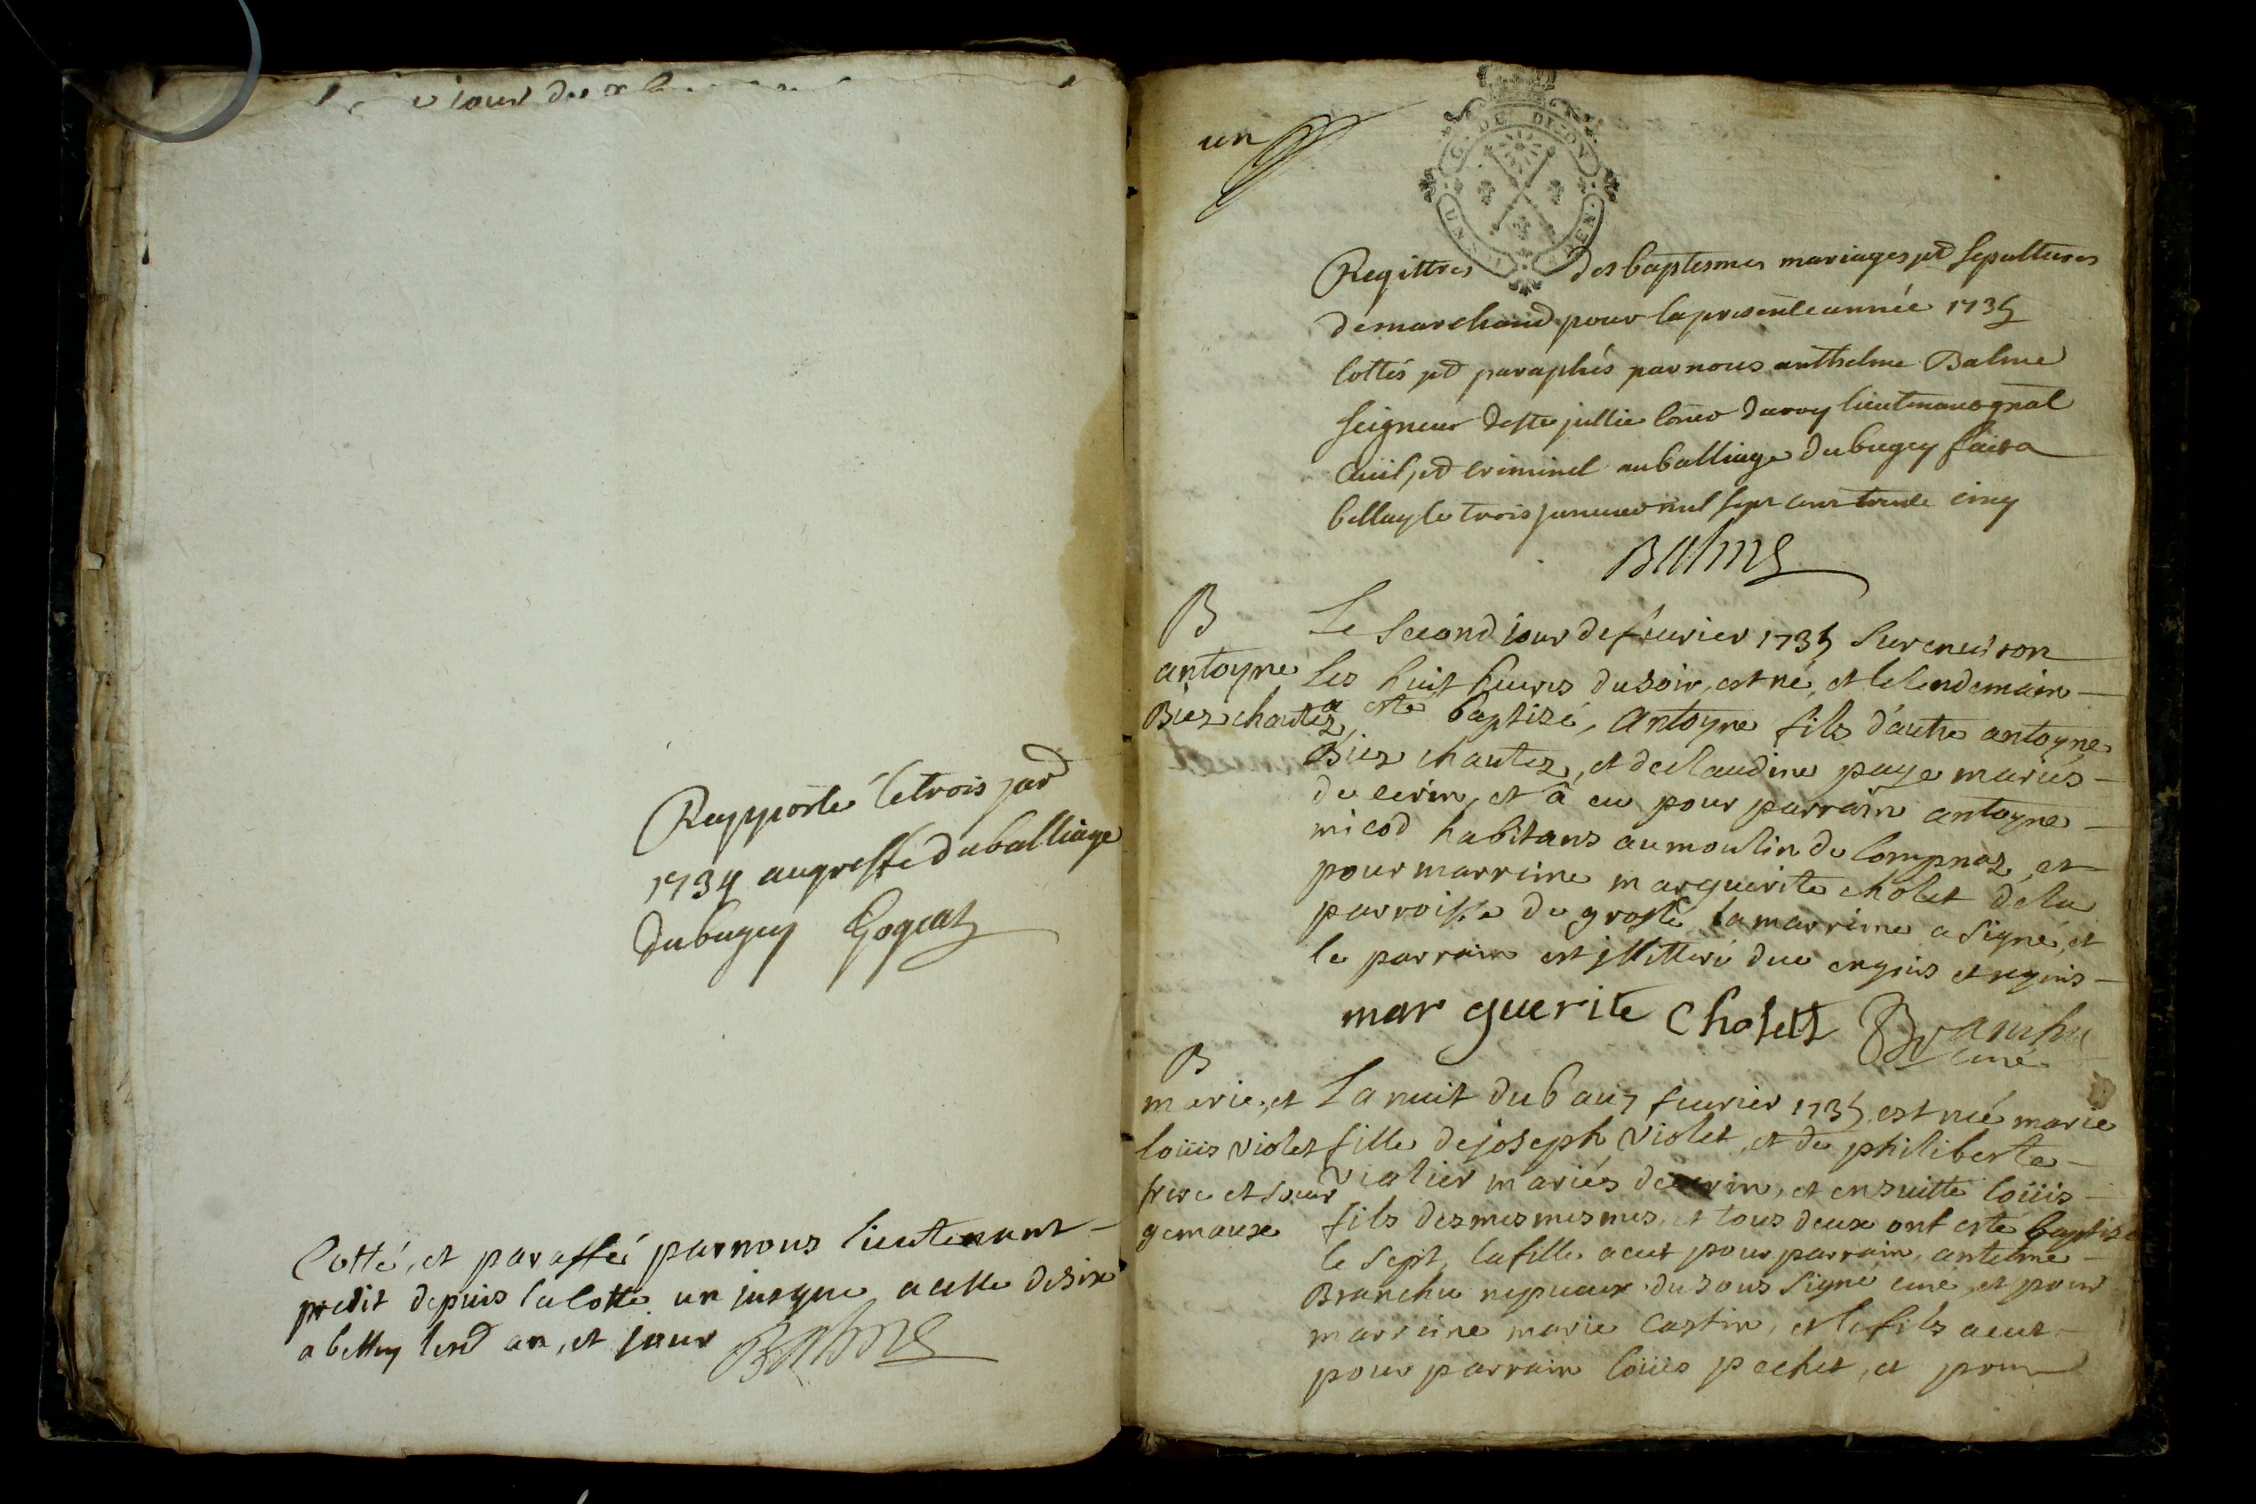 jour de
Rapporté le trois jar
1734 au greffe du balliage
du bugey Gogeat
Cotté, et paraffé par nous lieutenant
predit depuis la cotte un jusque a celle de six
a belley lesd an, et jour Balme
un
G. DE DIJON
UN S. REN.
Regittres des baptesmes mariages et sepultures
de marchand pour la presente année 1735
cottés et paraphés par nous anthelme Balme
seigneur de ste jullie coner du roy lieutenant gnal
civil, et criminel au balliage du bugey fait a
belley le trois janvier mil sept cent trente cinq
Balme
B
antoyne
Biez chautez
Le second jour de feurier 1735 sur enuiron
les huit heures du soir, est né, et le lendemain
a esté baptizé, antoyne fils d'autre antoyne
Biez chautez, et de claudine paye mariés
de cerin, et à eu pour parrain antoyne
micod habitans au moulin de compnaz, et
pour marreine marguerite cholet de la
parroisse de groslé, la marrine a signé, et
le parrain est jllitteré deue enquis et requis
mar guerite Cholett Branche
curé
B
marie, et
loüis violet
frere et soeur
gemaux
La nuit du 6 au 7 feurier 1735 est née marie
fille de joseph violet, et de philiberte
violier mariés de cerin, et en suitte loüis
fils des mesmes mes, et tous deux ont esté baptizé
le sept, la fille a eut pour parrain, antelme
Branche nepueux du sous signé curé, et pour
marreine marie castin, et le fils a eut
pour parrain loüis pechet, et pour